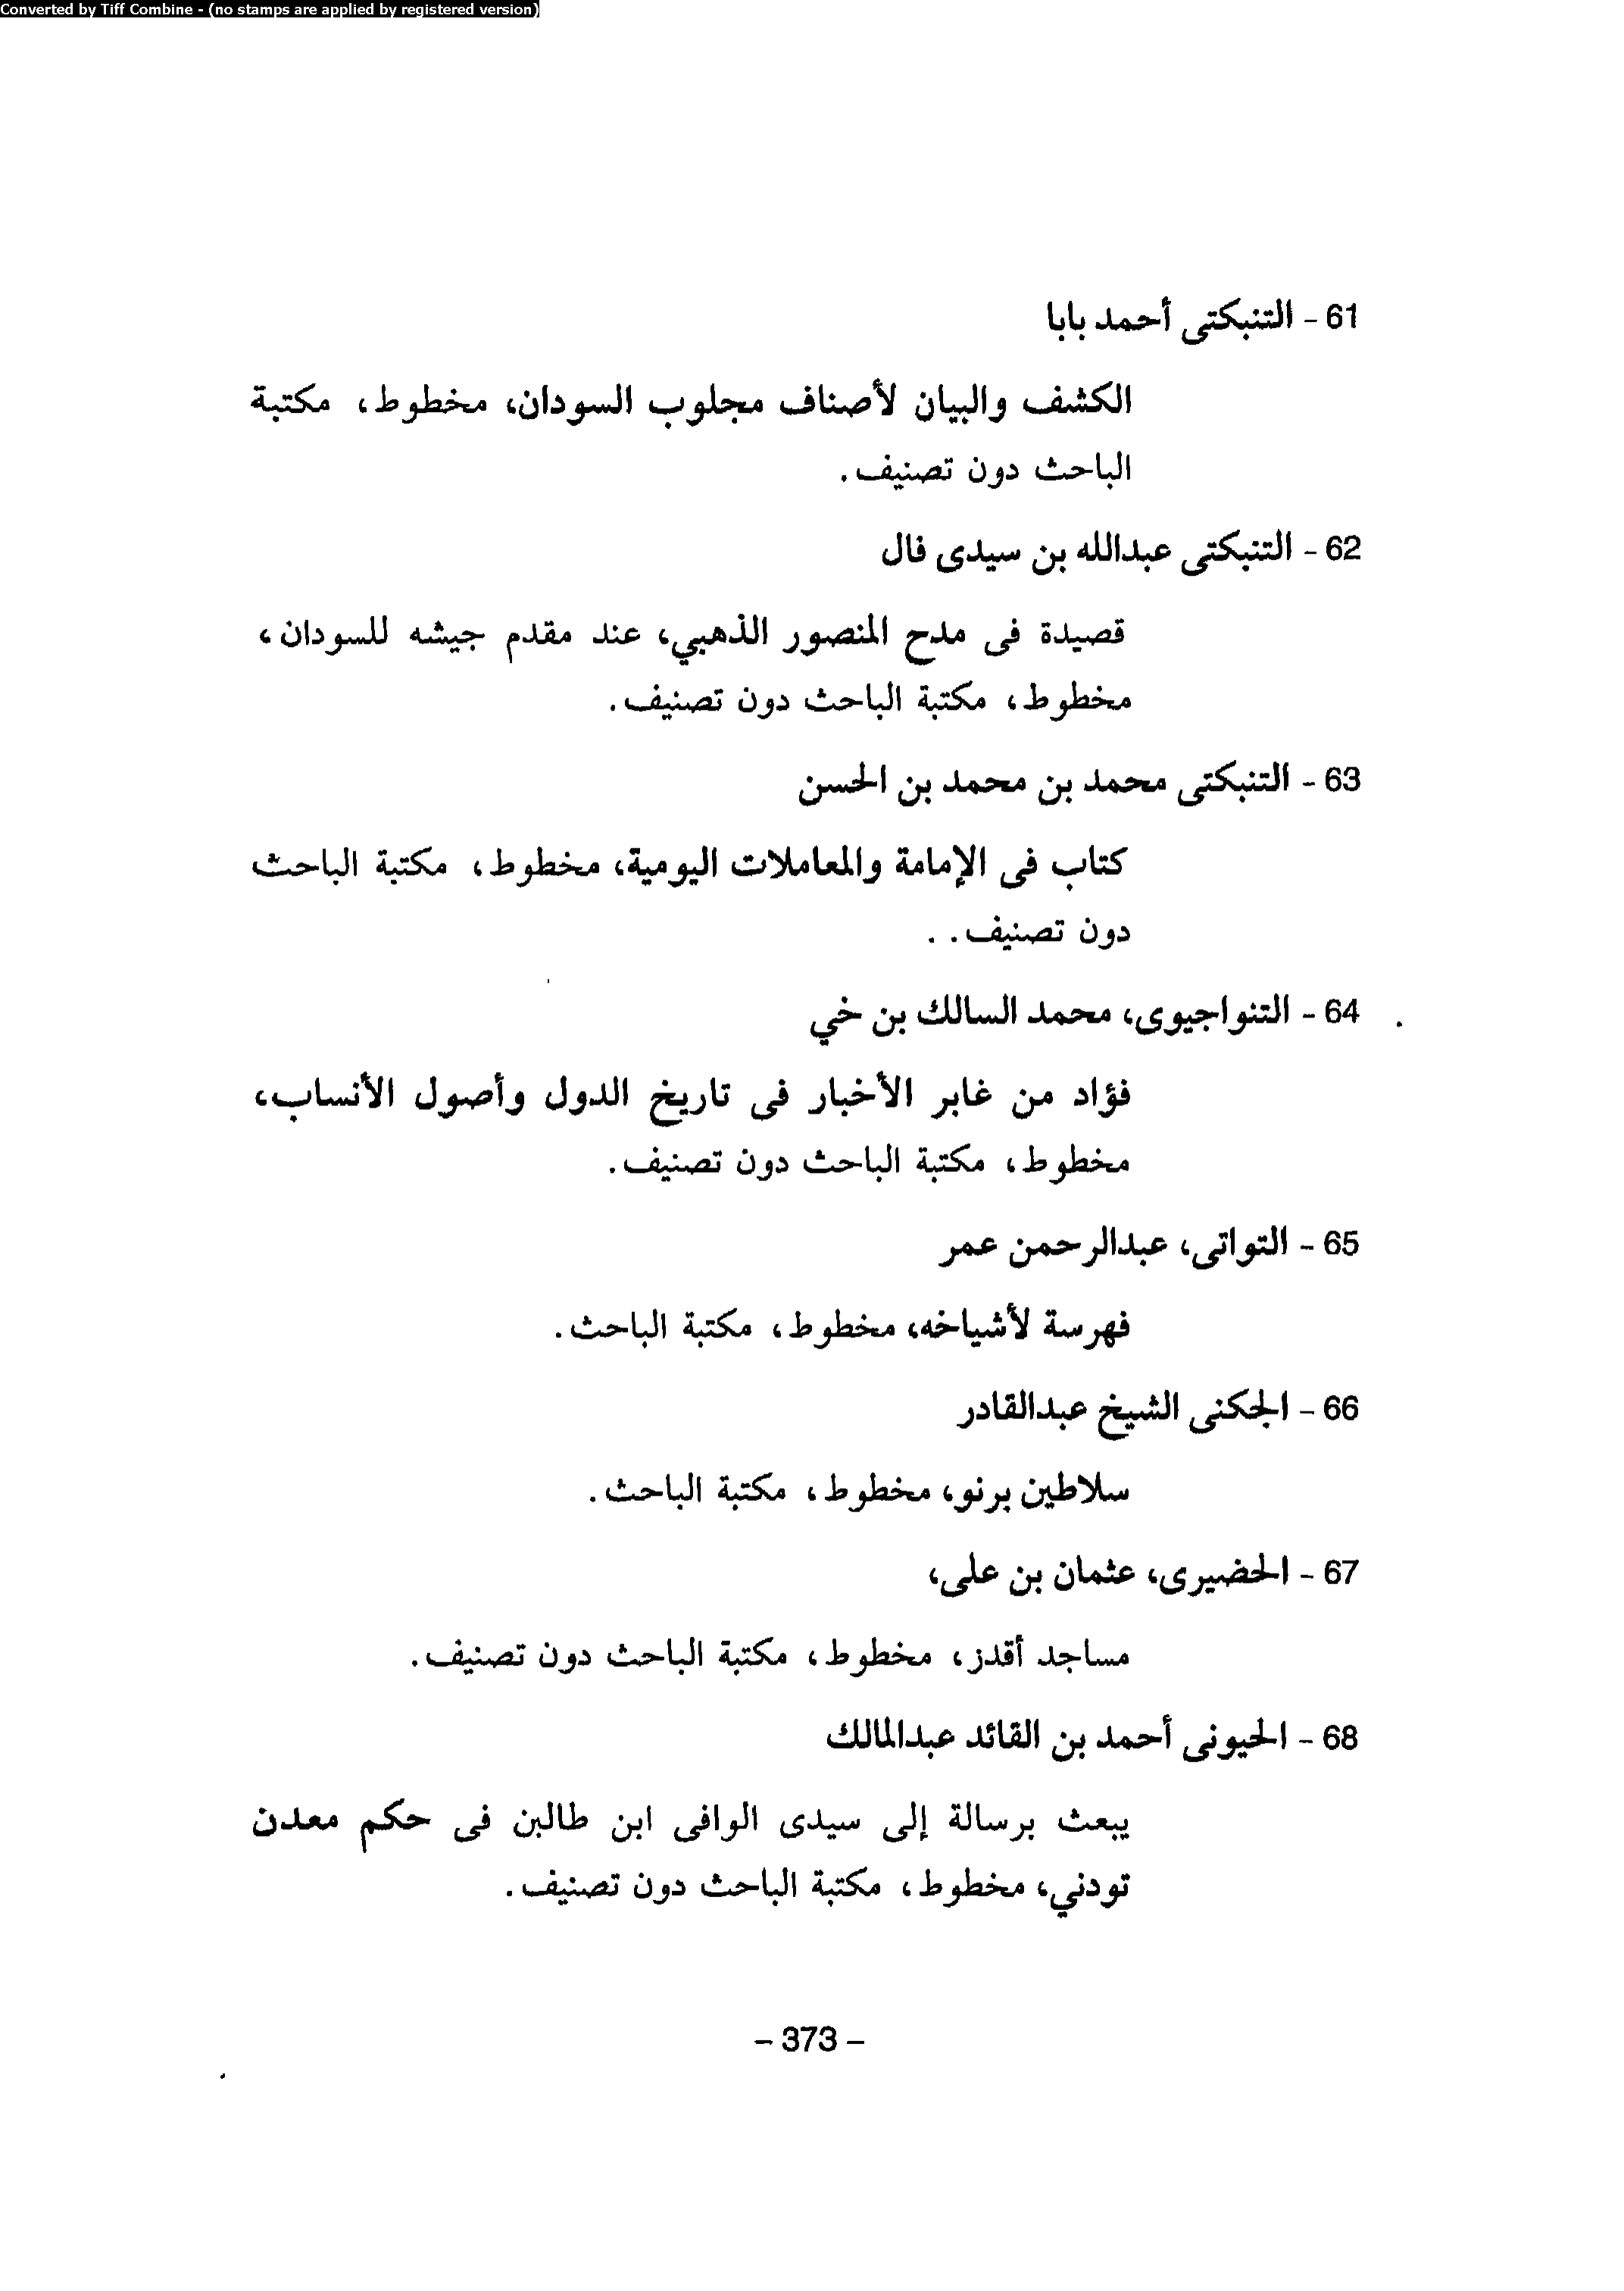 Converted by Tiff Combine - (no stamps are applied by registered version)
61 - التنبكتى أحمد بابا
الكشف والبيان لأصناف مجلوب السودان، مخطوط، مكتبة
الباحث دون تصنيف.
62 - التنبكتى عبدالله بن سيدى فال
قصيدة فى مدح المنصور الذهبي، عند مقدم جيشه للسودان،
مخطوط، مكتبة الباحث دون تصنيف.
63 - التنبكتى محمد بن محمد بن الحسن
كتاب فى الإمامة والمعاملات اليومية، مخطوط، مكتبة الباحث
دون تصنيف. .
64 - التنواجيوى، محمد السالك بن خي
فؤاد من غابر الأخبار فى تاريخ الدول وأصول الأنساب،
مخطوط، مكتبة الباحث دون تصنيف.
65 - التواتى، عبدالرحمن عمر
فهرسة لأشياخه، مخطوط، مكتبة الباحث.
66 - الجكنى الشيخ عبدالقادر
سلاطين برنو، مخطوط، مكتبة الباحث.
67 - الحضيرى، عثمان بن على،
مساجد أقدز، مخطوط، مكتبة الباحث دون تصنيف.
68 - الحيونى أحمد بن القائد عبدالمالك
يبعث برسالة إلى سيدى الوافى ابن طالبن فى حكم معدن
تودني، مخطوط، مكتبة الباحث دون تصنيف.
- 373 -